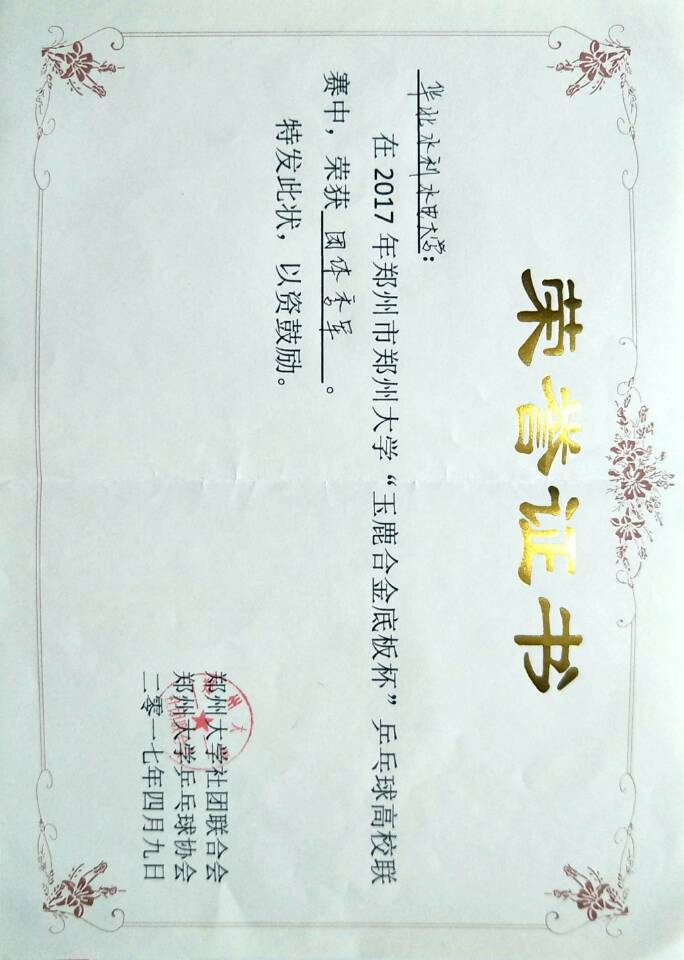 荣誉证书
华北水利水电大学：
在 2017 年郑州市郑州大学“玉鹿合金底板杯”乒乓球高校联
赛中，荣获 团体季军 。
特发此状，以资鼓励。
郑州大学社团联合会
郑州大学乒乓球协会
二零一七年四月九日